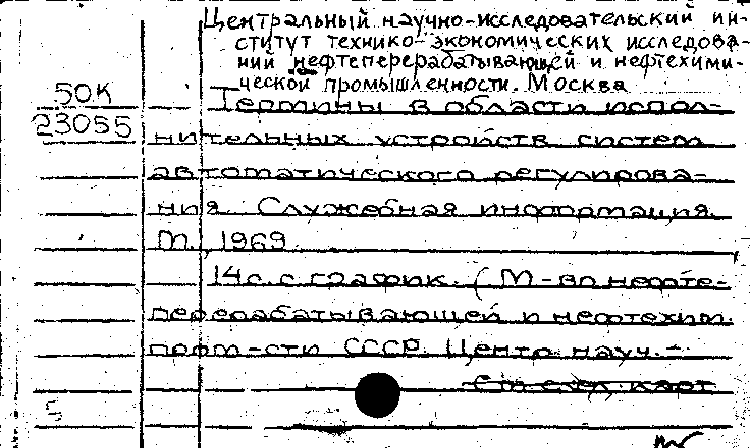 Центральный научно-исследовательский ин-
ститут технико-экономических исследова-
ний нефтеперерабатывающей и нефтехими-
ческой промышленности. Москва
50К Термины в области испол-
23055 нительных устройств систем
автоматического регулирова-
ния. Служебная информация.
М., 1969
14 с. с график. (М-во нефте-
перерабатывающей и нефтехим.
пром-сти СССР. Центр. науч.-
См. след. карт
5